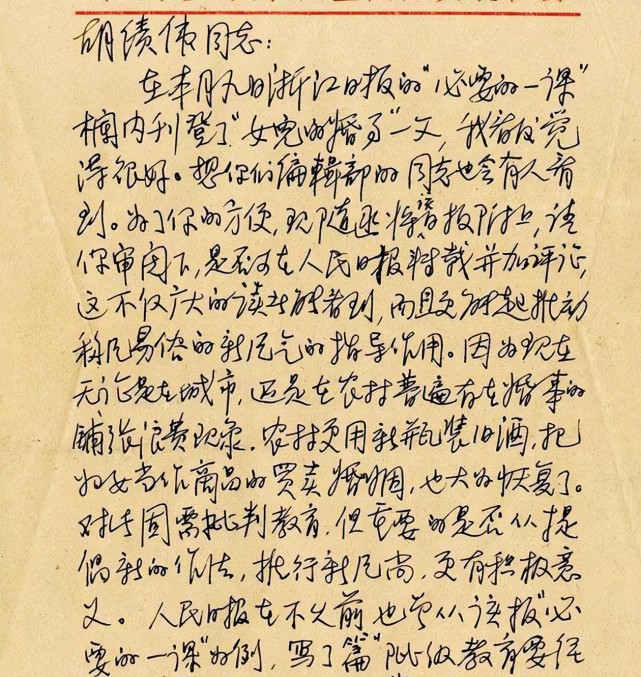 胡绩伟同志：
在本月九日浙江日报的"必要的一课"
栏内刊登了"女儿的婚事"一文，我看后觉
得很好。想你们编辑部的同志也会有人看
到。为了你的方便，现随函将该报附上，请
你审阅下，是否可在人民日报转载并加评论，
这不仅广大的读者能看到，而且更能起推动
移风易俗的新风气的指导作用。因为现在
无论是在城市，还是在农村普遍存在婚事的
铺张浪费现象。农村更用新瓶装旧酒，把
妇女当作商品的买卖婚姻，也大为恢复了。
对此固需批判教育，但重要的是否从提
倡新的作法，推行新风尚，更有积极意
义。人民日报在不久前也曾从该报"必
要的一课"为例，写了篇"阶级教育要经